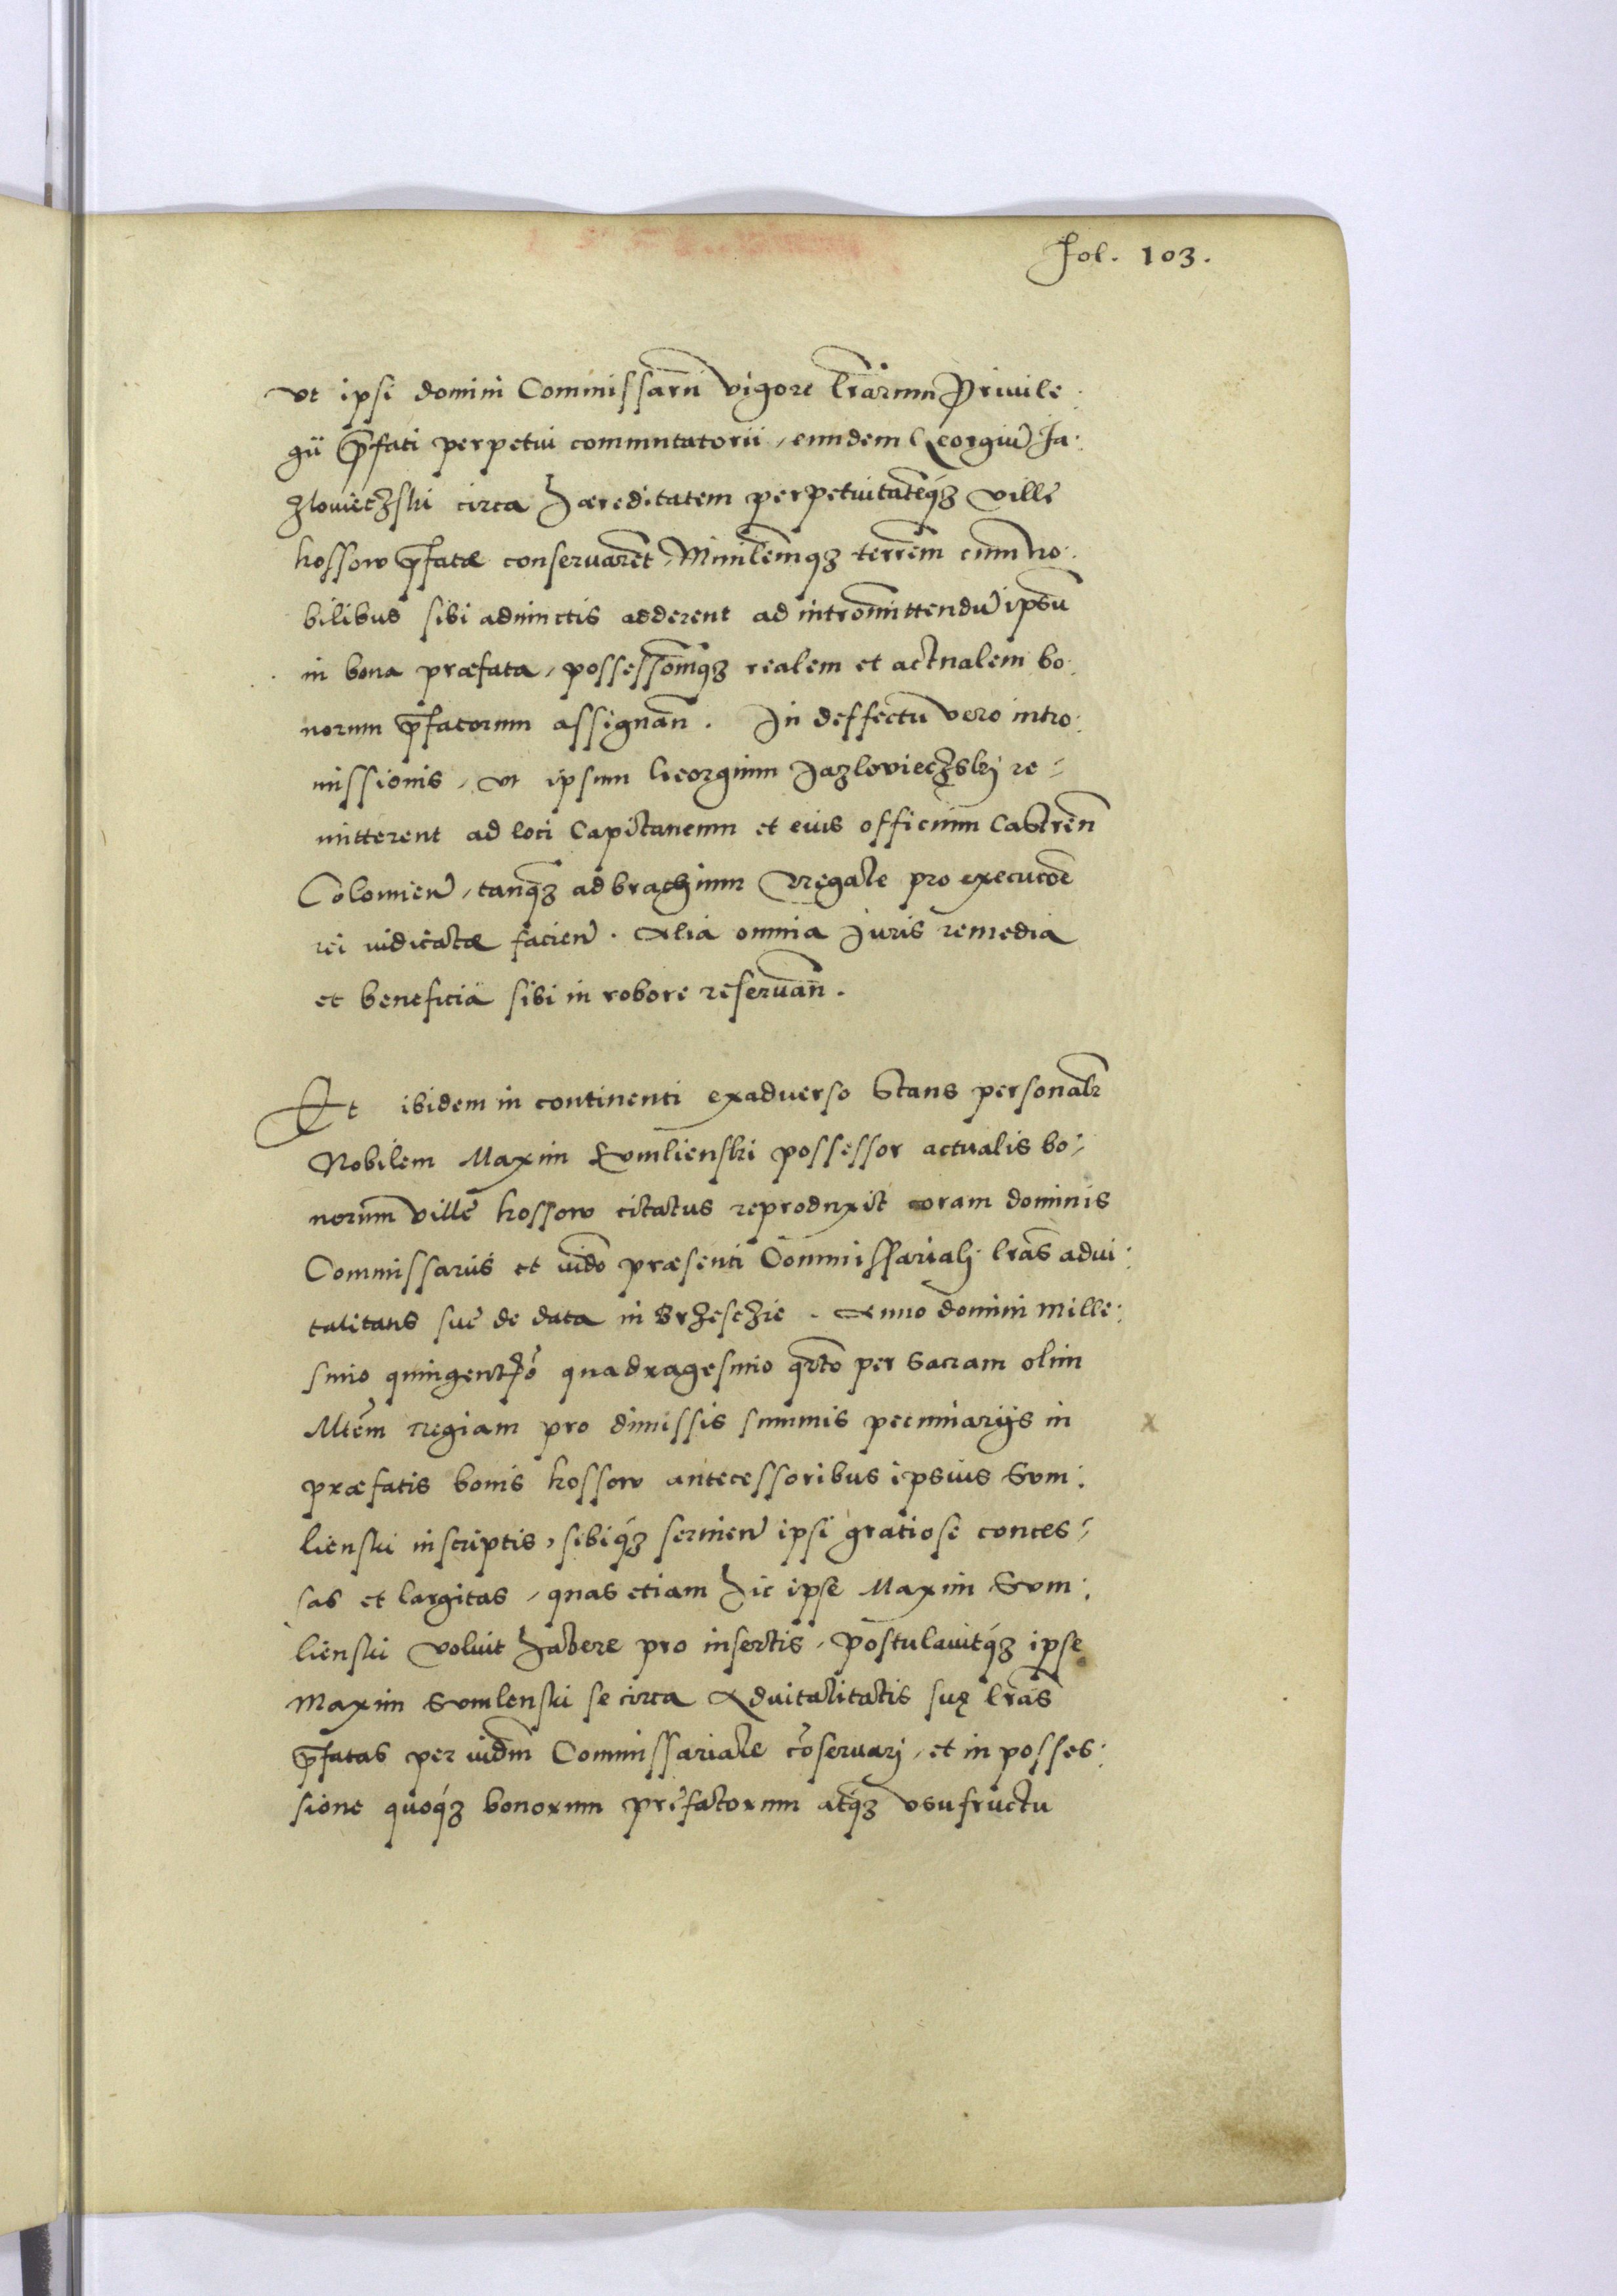 Fol. 103.
Vt ipsi domini Commissarii vigore lrarum Priuile:
gii p̄fati perpetui commutatorii, eundem Georgiū Ja:
zlowieczski circa Haereditatem perpetuitatēq́ꝫ villę
kossow p̄fatae conseruarēt, Minilēmqꝫ terrēm cum No:
bilibus sibi adiunctis adderent ad intromittendū ipsū
in bona praefata, possessiōmq́ꝫ realem et actualem bo:
norum p̄fatorum assignan̄. In deffectu vero intro:
missionis, vt ipsum Georgium Jazlovieczskj re=
mitterent ad loci Capitaneum et eius officium Castren̄
Colomien̄, tanq́ꝫ ad brachium Regale pro executōē
rei iudicatae facien̄. Alia omnia Juris remedia
et beneficia sibi in robore reseruan̄.
Et ibidem in continenti exaduerso Stans personalr̄
Nobilem Maxim Somlienski possessor actualis bo=
norum villę kossow citatus reproduxit coram dominis
Commissariis et iudō praesenti Commissarialj lras̄ adui:
talitatis suę de data in Brzesczie. Anno domini Mille:
simo quingentō quadragesimo qrto per Sacram olim
Mtēm Regiam pro dimissis summis pecuniarijs in
praefatis bonis kossow antecessoribus ipsius Som:
lienski inscriptis, sibiq́ꝫ seruien̄ ipsi gratiose conces=
sas et largitas, quas etiam Hic ipse Maxim Som:
lienski voluit Habere pro insertis, Postulauitq́ꝫ ipse
Maxim Somlenski se circa Aduitalitatis suę lras̄
p̄fatas per iudm̄ Commissariale cōseruarj, et in posses:
sione quoq́ꝫ bonorum pręfatorum atq́ꝫ vsufructu
x